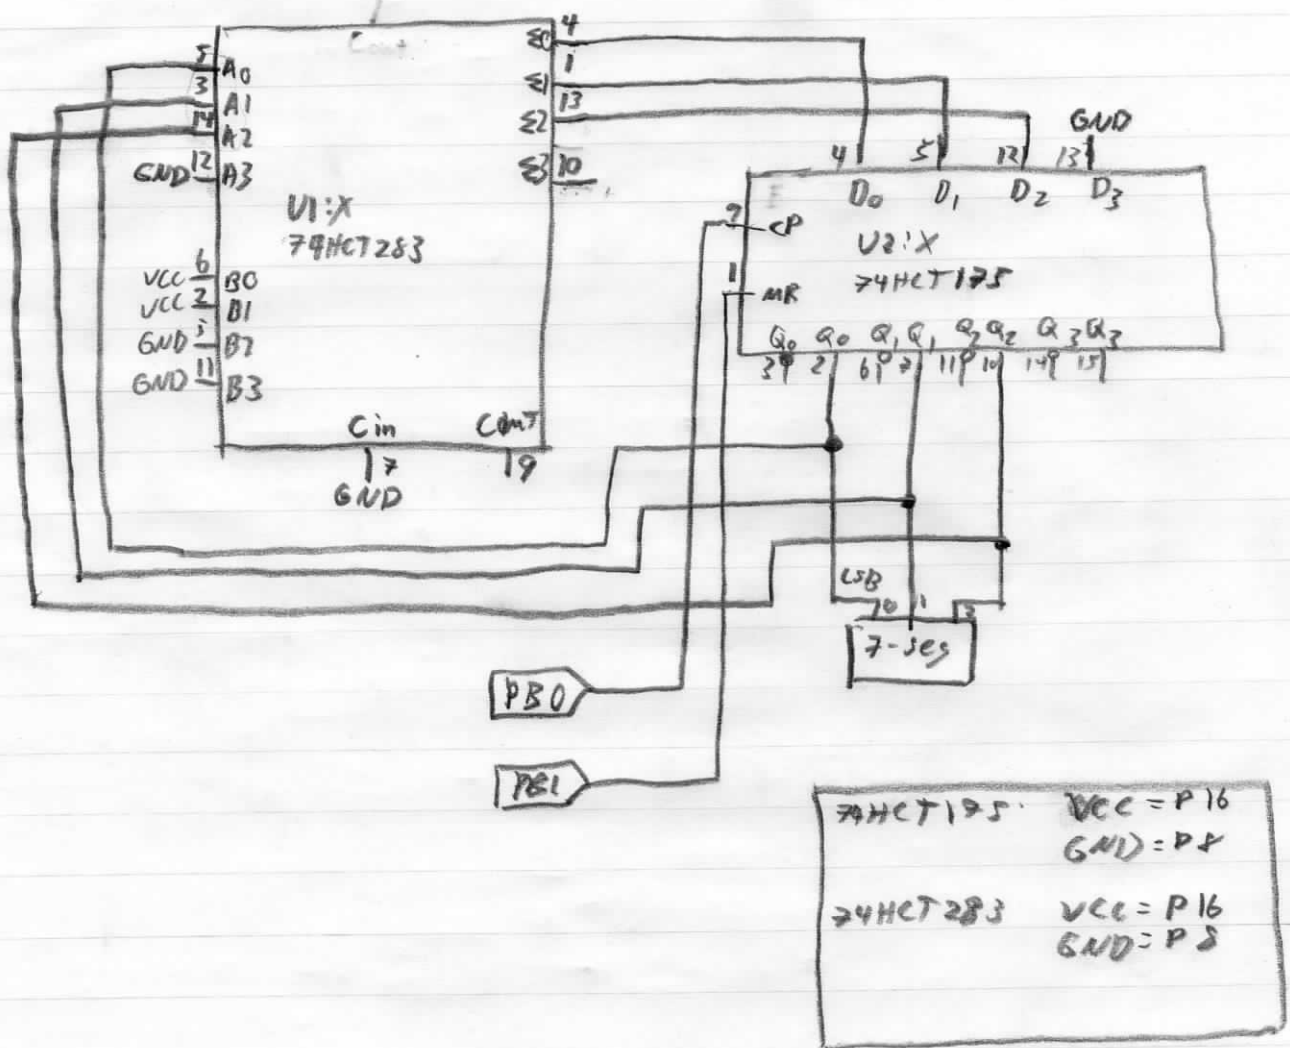 Cout
5 A0
3 A1
14 A2
GND 12 A3
VCC 6 B0
VCC 2 B1
GND B2
GND 11 B3
U1:X
74HCT283
Σ0 4
Σ1 1
Σ2 13
Σ3 10
Cin
7
GND
Cout
9
GND
4 5 12 13
D0 D1 D2 D3
9 CP
1 MR
U2:X
74HCT175
Q0 Q0 Q1 Q1 Q2 Q2 Q3 Q3
3 2 6 7 11 10 14 15
LSB
0 1 2
7-seg
PB0
PB1
74HCT175 VCC = P16
GND = P8
74HCT283 VCC = P16
GND = P8